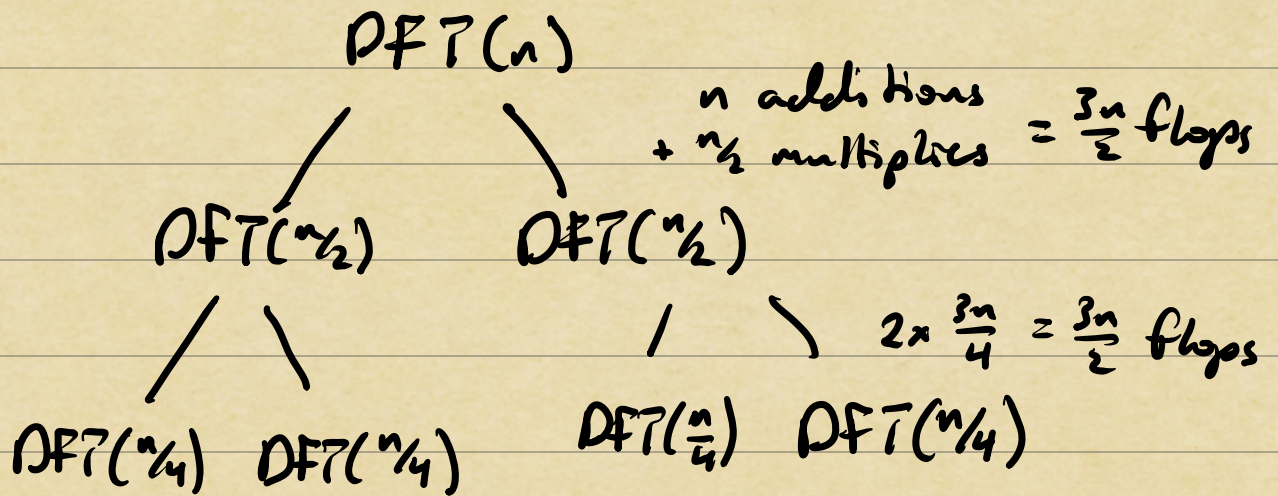 DFT(n)
n additions
+ n/2 multiplies = 3n/2 flops
DFT(n/2) DFT(n/2)
2 x 3n/4 = 3n/2 flops
DFT(n/4) DFT(n/4) DFT(n/4) DFT(n/4)